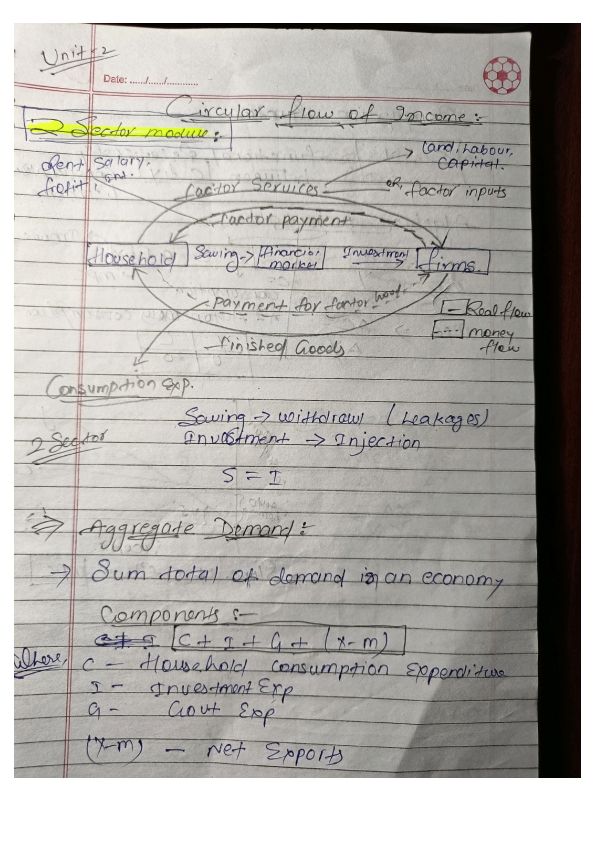 Unit-2
Date: ....../....../............
Circular flow of Income:
2 Sector module:
Land, Labour,
Rent, Salary.
Capital.
Profit, int.
factor services
or, factor inputs
factor payment
Household
Saving →
financial market
Investment
firms.
payment for factor
— Real flow
finished Goods
--- money flow
Consumption exp.
Saving → withdrawl (Leakages)
2 Sector
Investment → Injection
S = I
⇒ Aggregate Demand:
→ Sum total of demand in an economy
Components :-
C + I + G + (x-m)
where,
C - Household consumption Expenditure
I - Investment Exp
G - Govt Exp
(x-m) - Net Exports